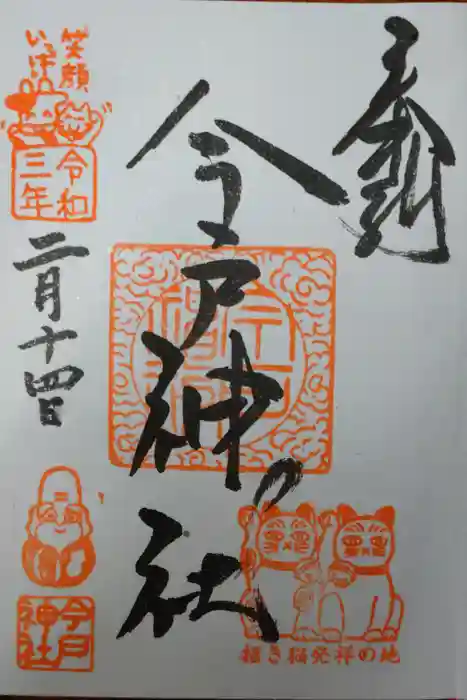 奉拝
今戸神社
笑顔
いっぱい
令和
三年
二月十四日
今戸
神社
招き猫発祥の地